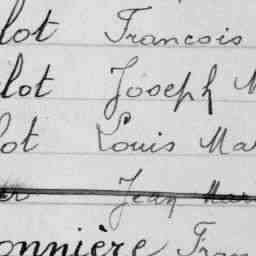 lot Francois
lot Joseph M
ot Louis Ma
er Jean Mar
onnière Fran